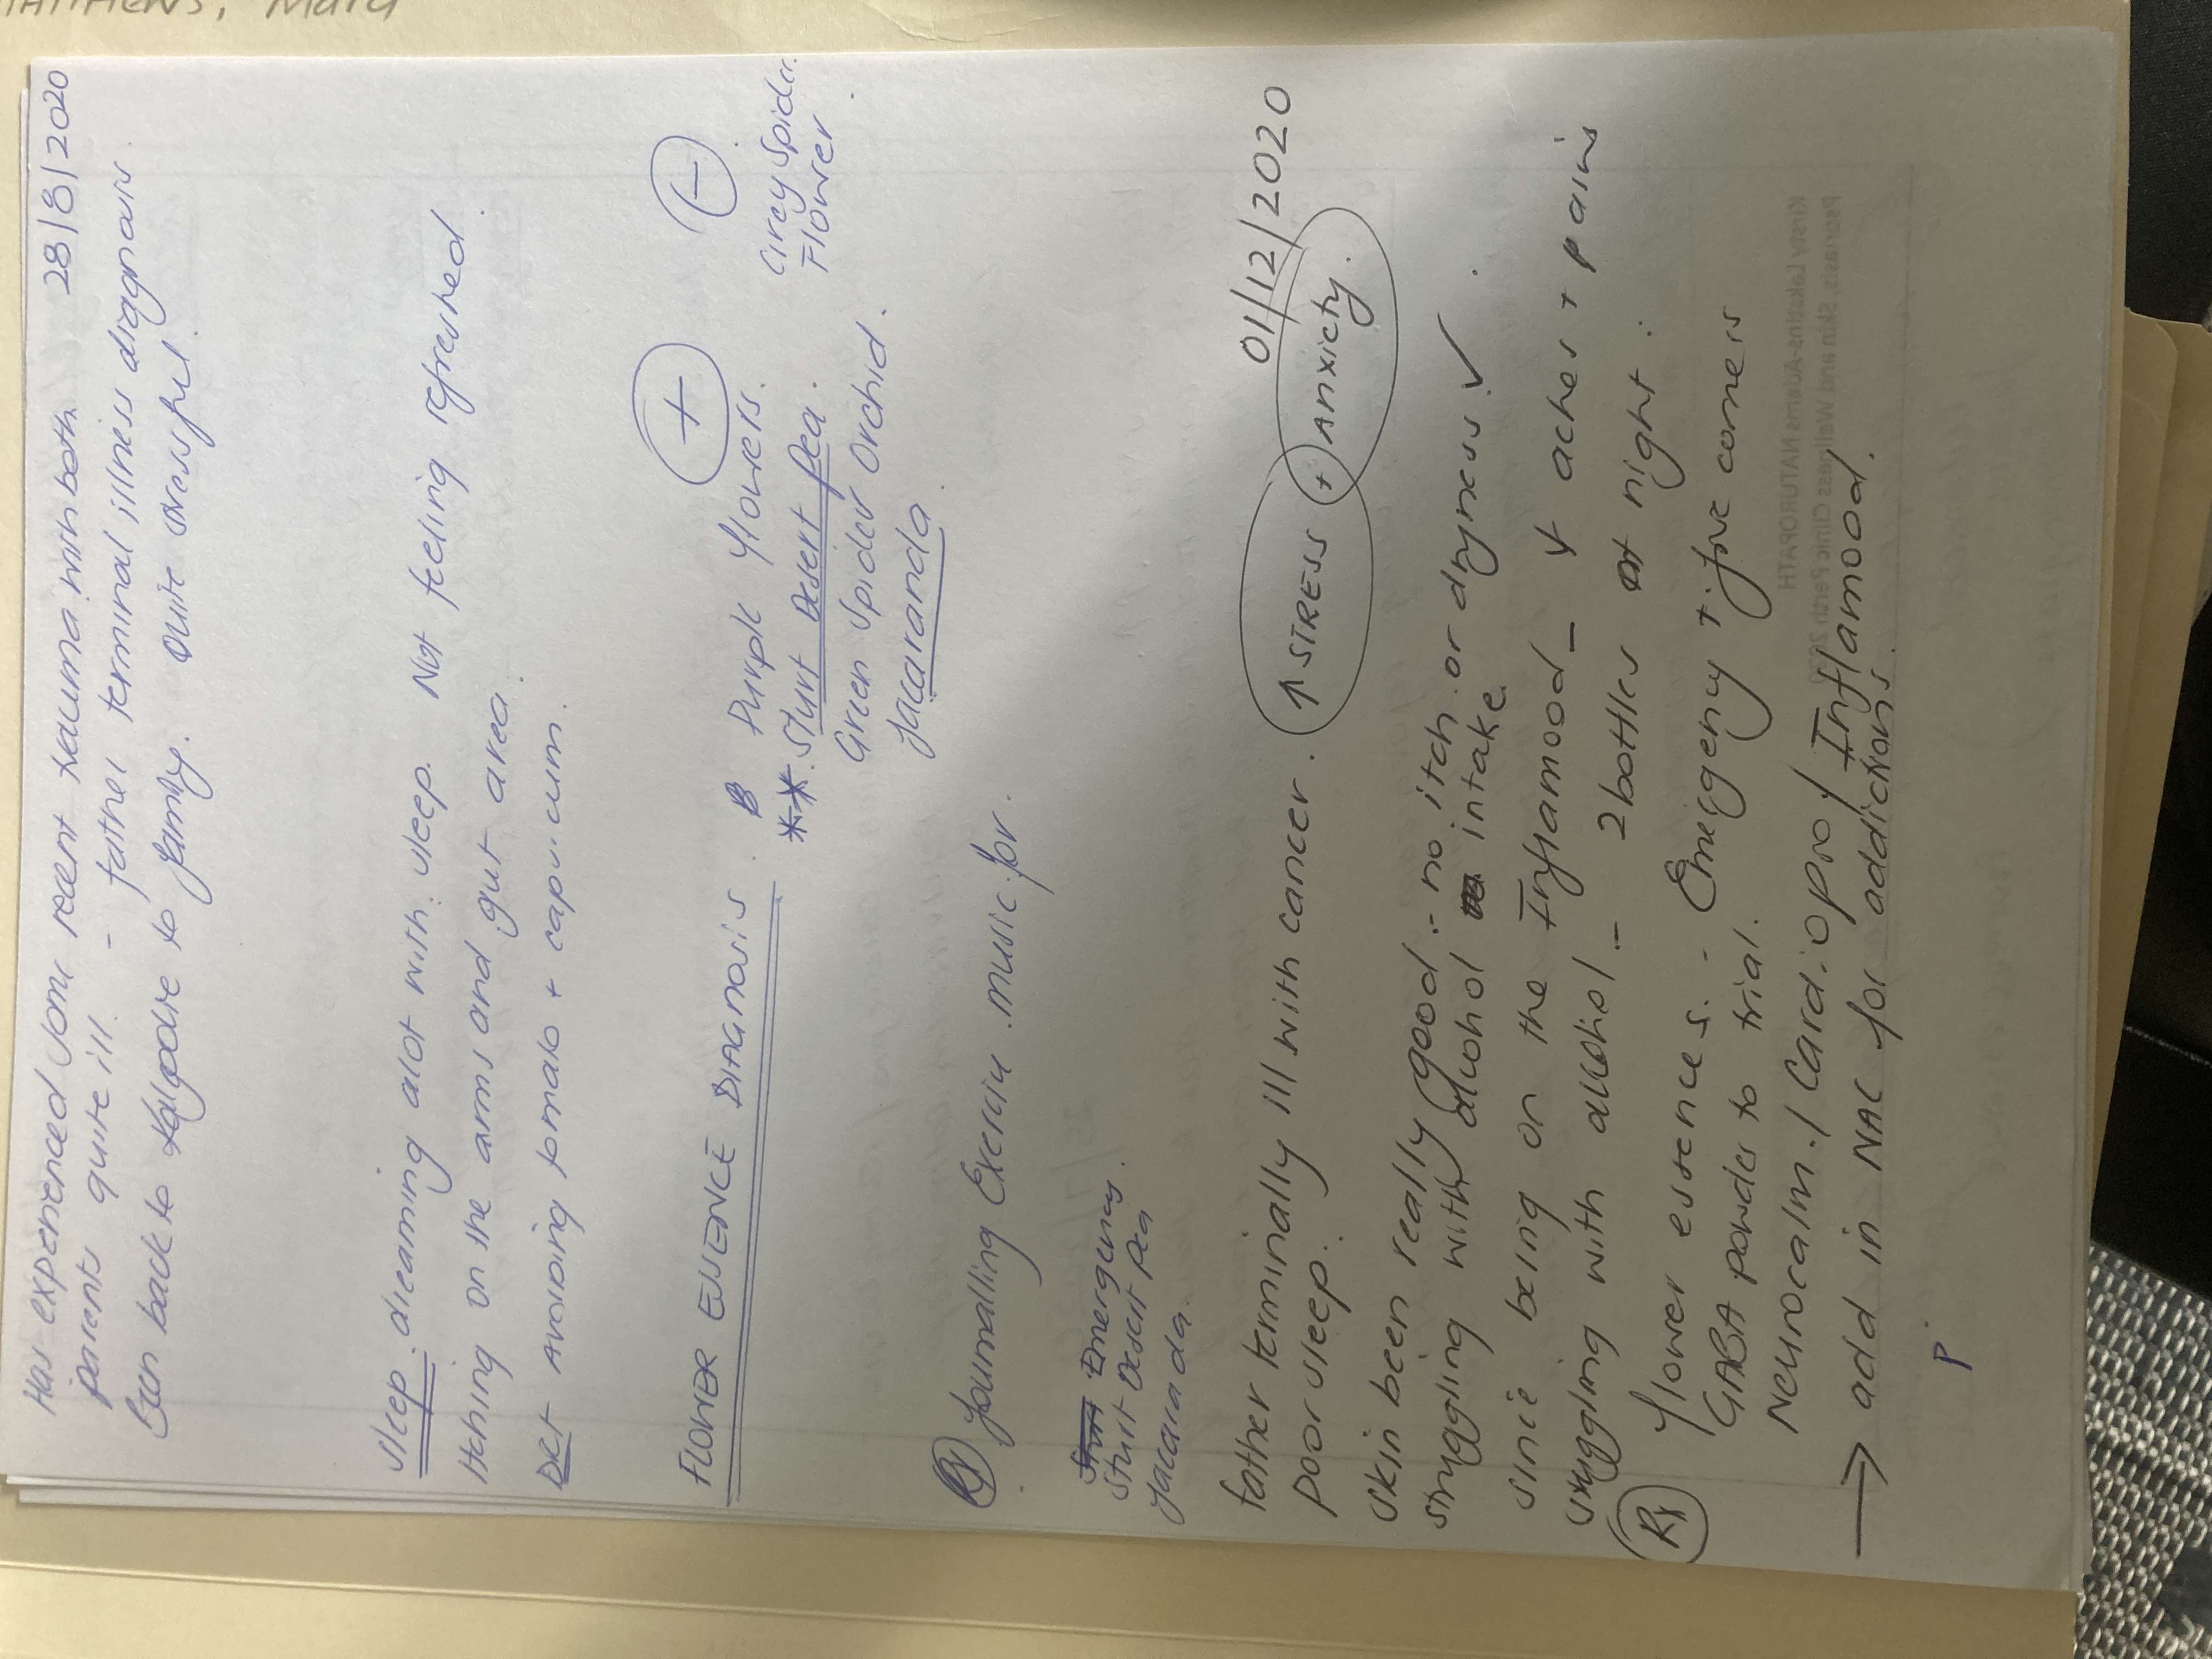 MATTHEWS, Mary
Has experienced some recent trauma with both 28/8/2020
parents quite ill. - father terminal illness diagnosis
Been back to Kalgoorlie to family. Quite stressful.
Sleep. dreaming alot with sleep. Not feeling refreshed.
Itching on the arms and gut area.
Diet avoiding tomato + capsicum.
+ -
FLOWER ESSENCE DIAGNOSIS. Purple flowers. Grey Spider
** Sturt Desert Pea. Flower
Green Spider Orchid.
Jacaranda
Rx Journalling Exercise music for.
Emergency
Sturt Desert Pea
Jacaranda.
01/12/2020
father terminally ill with cancer. ↑ STRESS + ANXIETY.
poor sleep.
Skin been really good - no itch or dryness ✓.
struggling with alcohol intake
since being on the Inflamood - ↓ aches + pains
struggling with alcohol - 2 bottles at night.
Rx flower essences - Emergency + five corners
GABA powder to trial.
Neurocalm / Cardio pro / Inflamood.
→ add in NAC for addictions.
P
Kirsty Lakatins-Adams NATUROPATH
Psoriasis, Skin and Wellness Clinic Perth